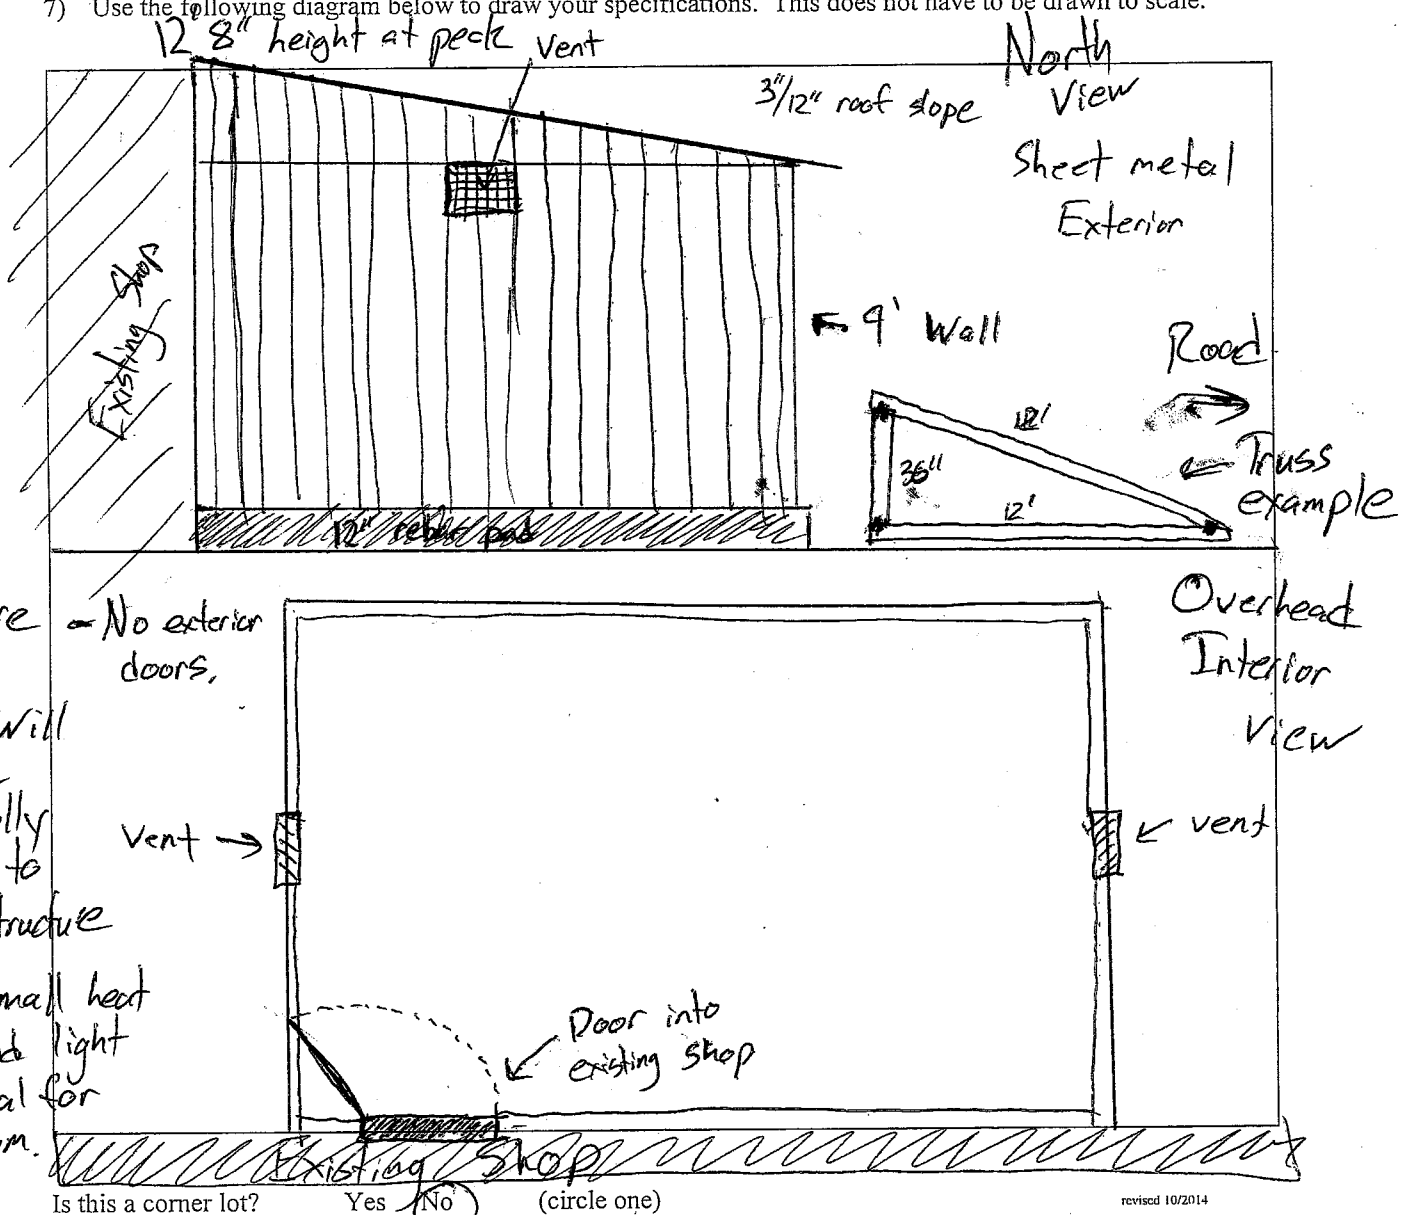 7) Use the following diagram below to draw your specifications. This does not have to be drawn to scale.
12' 8" height at peck
Vent
North
View
3"/12" roof slope
Sheet metal
Exterior
Existing Shop
9' Wall
Road
Truss
example
36"
12'
12" rebar pad
re - No exterior
doors.
Overhead
Interior
View
will
lly
to
tructue
mall heat
light
al for
m.
Vent
vent
Door into
existing shop
Existing Shop
Is this a corner lot? Yes No (circle one)
revised 10/2014